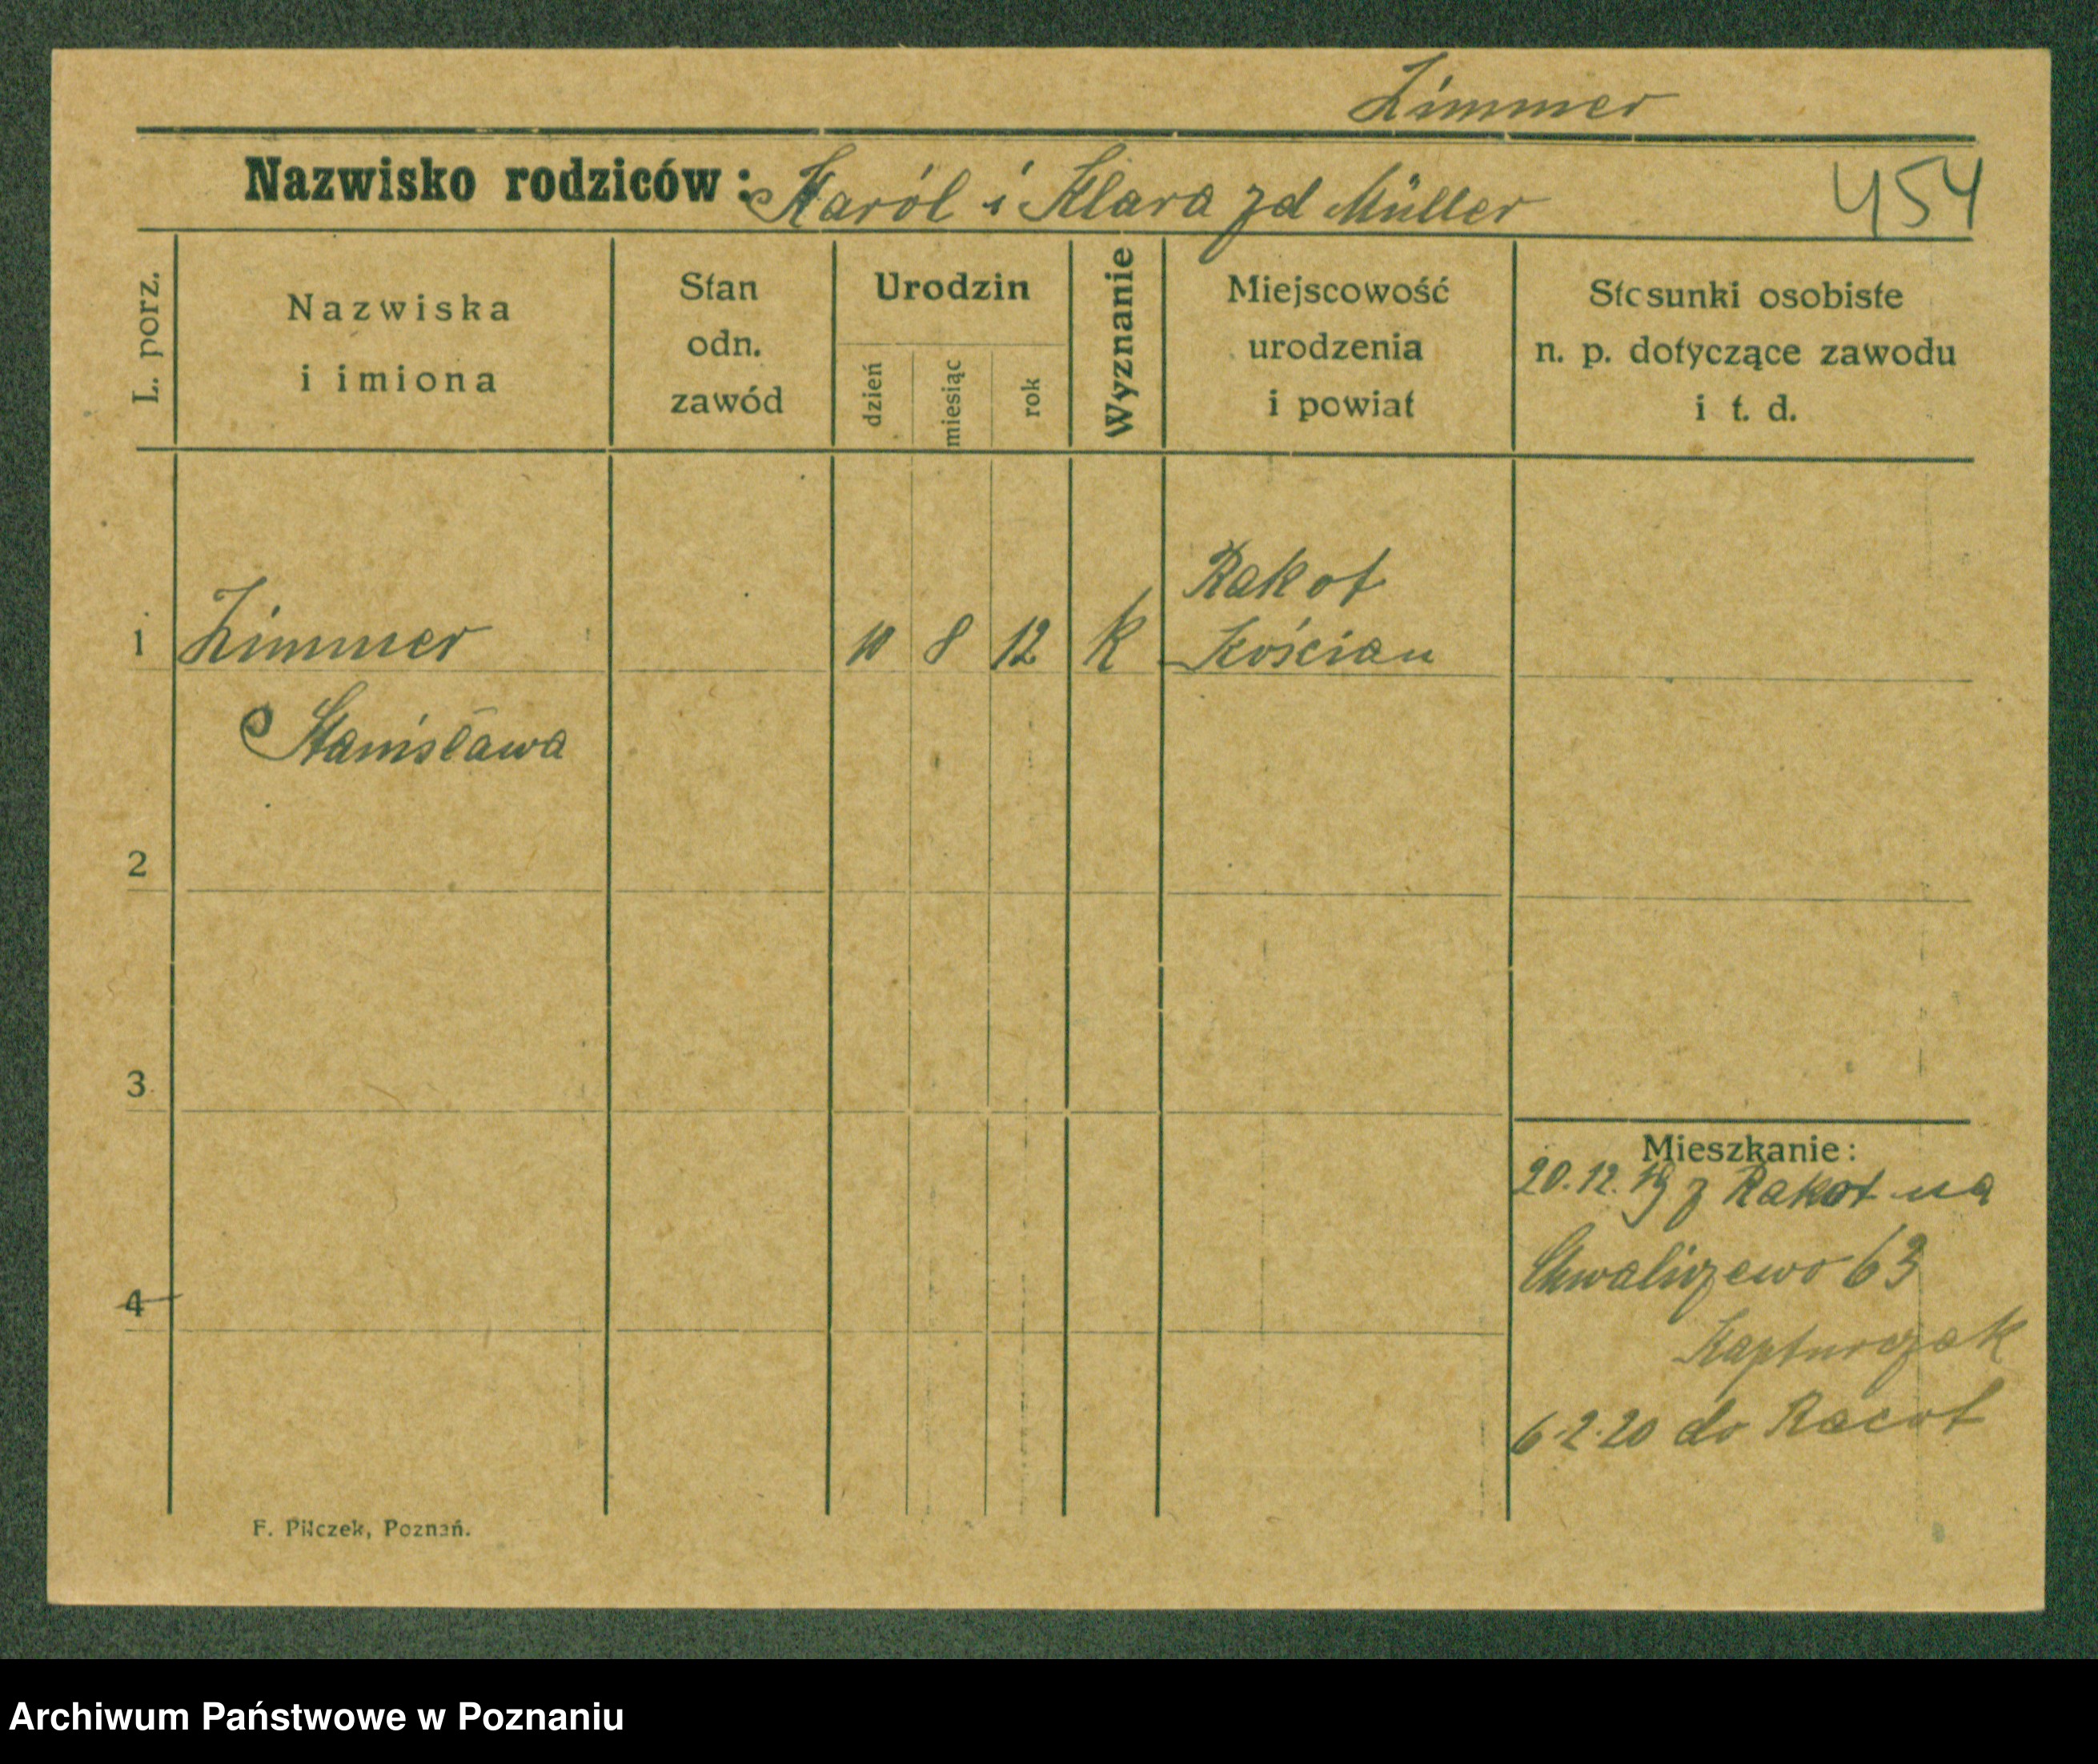 Zimmer
Nazwisko rodziców: Karól i Klara zd Müller
454
L. porz.
Nazwiska
i imiona
Stan
odn.
zawód
Urodzin
dzień
miesiąc
rok
Wyznanie
Miejscowość
urodzenia
i powiat
Stosunki osobiste
n. p. dotyczące zawodu
i t. d.
Rakot
1 Zimmer 10 8 12 k Kościan
Stanisława
2
3
4
Mieszkanie:
20.12.19 z Rakot na
Chwaliszewo 63
Kapturczak
6.2.20 do Racot
F. Pilczek, Poznań.
Archiwum Państwowe w Poznaniu